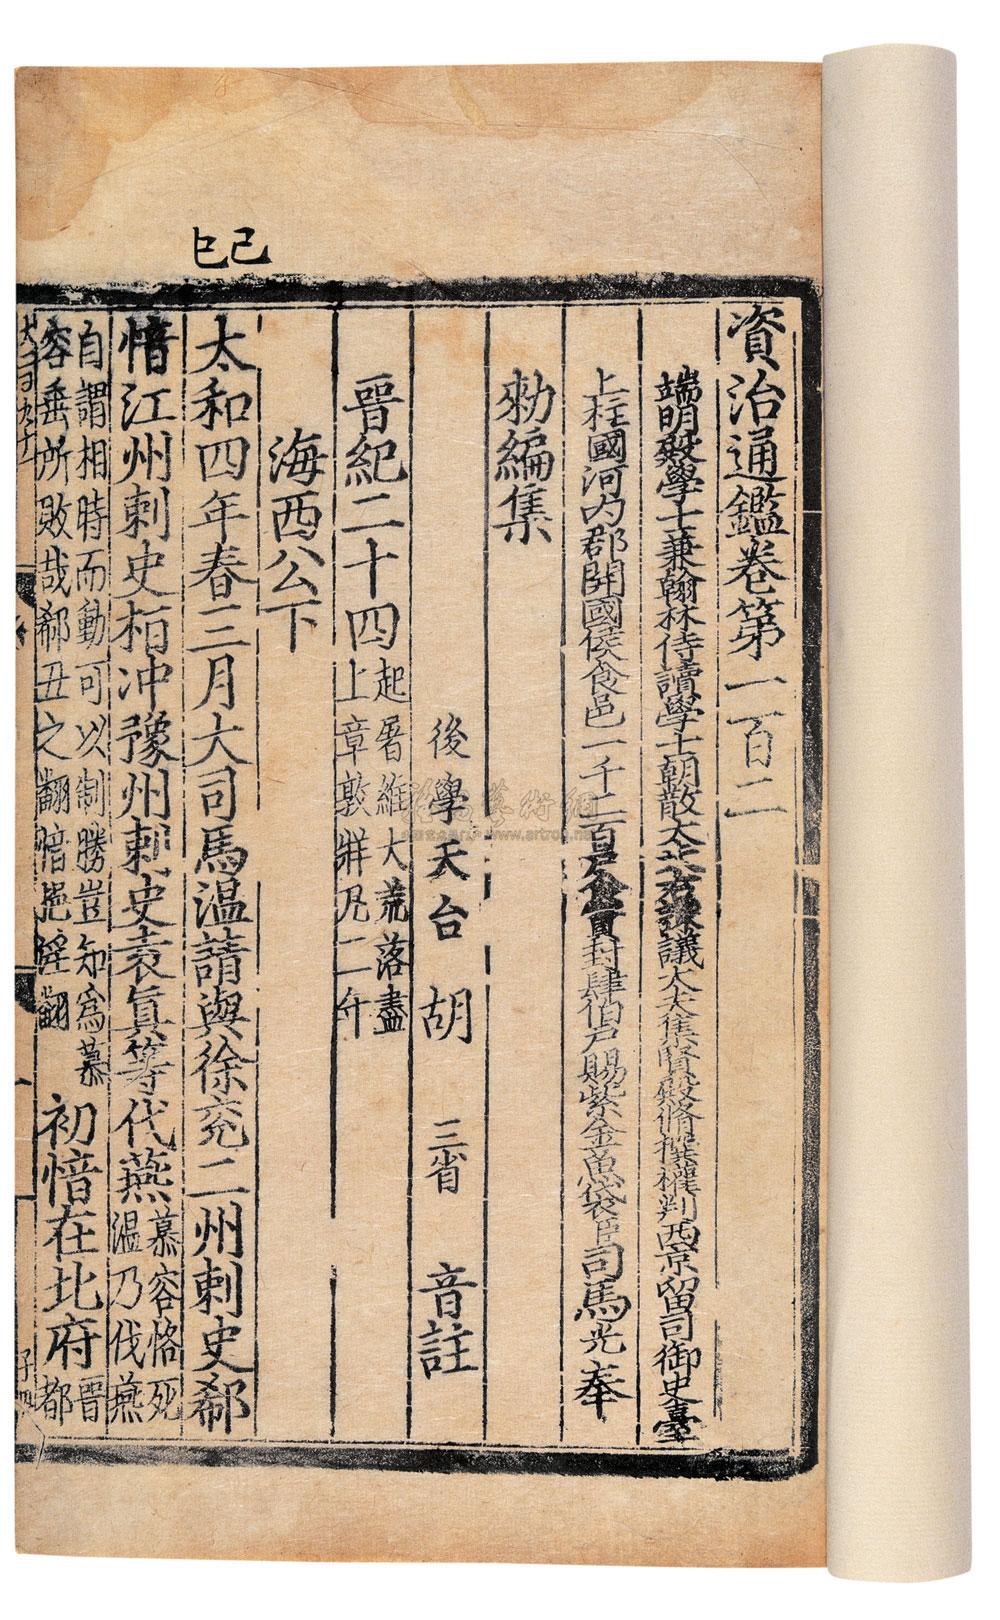 己巳
資治通鑑卷第一百二
端明殿學士兼翰林侍讀學士朝散大夫右諫議大夫集賢殿脩撰權判西京留司御史臺
上柱國河內郡開國侯食邑一千二百戶食實封肆伯戶賜紫金魚袋臣司馬光奉
勑編集
後學天台胡三省音註
晉紀二十四起屠維大荒落盡
上章敦牂凡二年
海西公下
太和四年春三月大司馬温請與徐兖二州刺史郗
愔江州刺史桓冲豫州刺史袁真等伐燕慕容恪死
温乃伐燕
自謂相時而動可以制勝豈知為慕
容垂所敗哉郗丑之翻愔挹淫翻初愔在北府晉
都